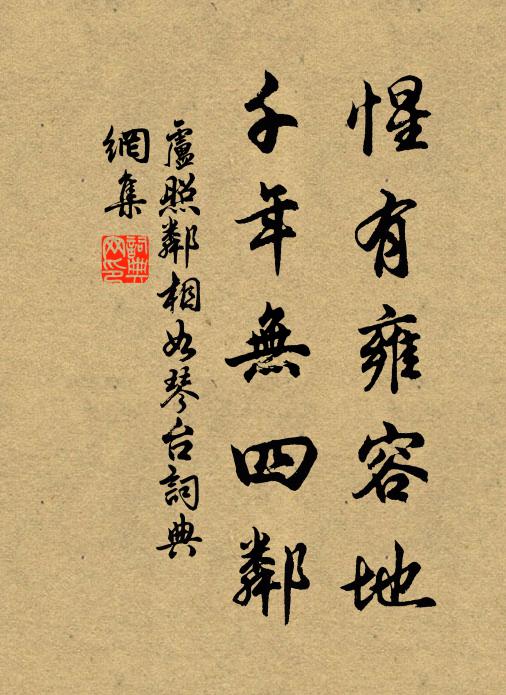 惺有雍容地
千年無四鄰
盧照鄰相如琴台詞典
網集
詞典网印